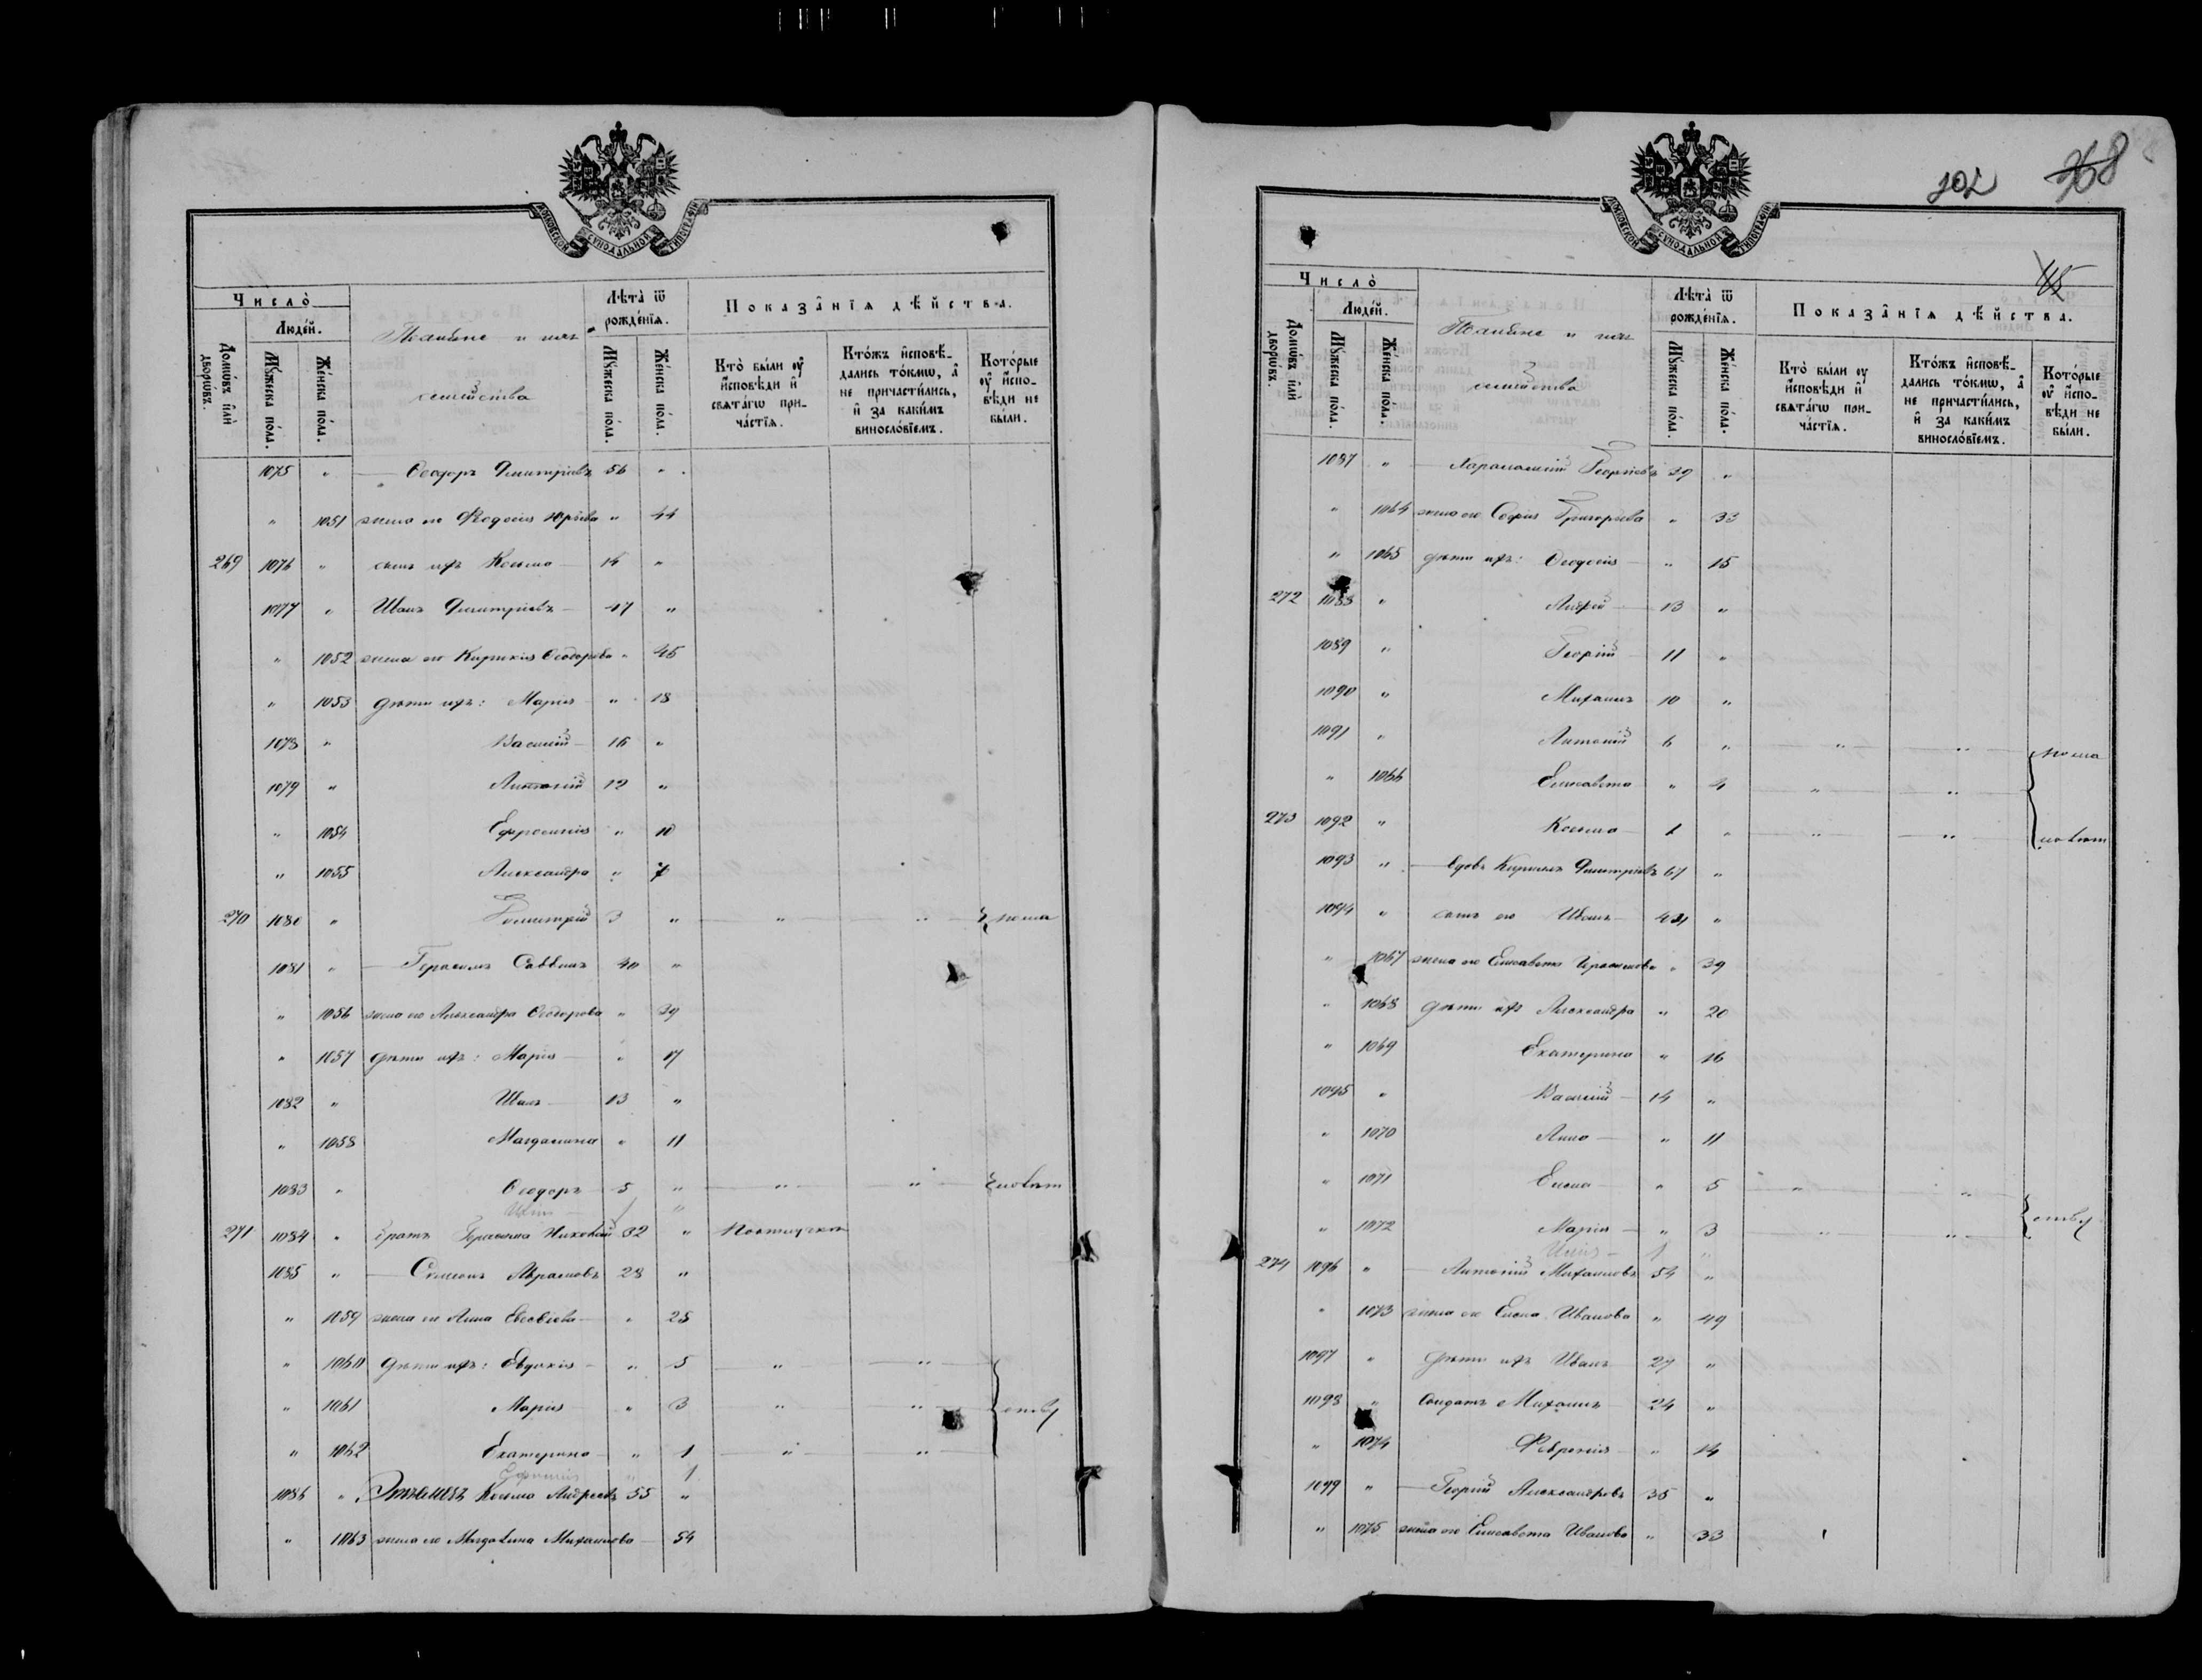 МОСКОВСКОЙ СУНОДАЛЬНОЙ ТИПОГРАФІИ
Число̀
Людей.
Домѡвъ и҆лѝ дворѡвъ.
Мꙋжеска пола.
Женска пола.
семейства
Лѣта̀ ѿ рожде́нїѧ.
Мꙋжеска пола.
Женска пола.
Показа̑нїѧ дѣ́йства.
Кто̀ были оу҆ и҆сповѣди и҆ свѧтагѡ причастїѧ.
Кто́жъ и҆сповѣдались то́кмѡ, а҆ не причасти́лись, и҆ за каки́мъ винослові́емъ.
Кото́рые оу҆ и҆сповѣди не были.
1075 " — Ѳеодоръ Димитріевъ 56 "
" 1051 жена его Ѳедосія Юрьева " 44
269 1076 " сынъ ихъ Косьма — 14 "
1077 " Иванъ Димитріевъ — 47 "
" 1052 жена его Кирикія Ѳеодорова " 45
" 1053 дѣти ихъ: Марія " 18
1078 " Василій — 16 "
1079 " Антоній 12 "
" 1054 Ефросинія " 10
" 1055 Александра " 7
270 1080 " Димитрій 3 " " "
1081 " — Герасимъ Саввинъ 40 "
" 1056 жена его Александра Ѳеодорова " 39
" 1057 дѣти ихъ: Марія — " 17
1082 " Иванъ — 13 "
" 1058 Магдалина " 11
1083 " Ѳеодоръ — 5 " " "
271 1084 " братъ Герасима Николай 32 "
1085 " — Симеонъ Абрамовъ 28 "
" 1059 жена его Анна Евсевіева — " 25
" 1060 дѣти ихъ: Евдокія — " 5 " "
" 1061 Марія " 3 " "
" 1062 Екатерина — " 1 " "
1
1086 " Косьма Андреевъ 55 "
" 1063 жена его Магдалина Михаилова — 54
102 368
Число̀
Людей.
Домѡвъ и҆лѝ дворѡвъ.
Мꙋжеска пола.
Женска пола.
семейства
Лѣта̀ ѿ рожде́нїѧ.
Мꙋжеска пола.
Женска пола.
Показа̑нїѧ дѣ́йства.
Кто̀ были оу҆ и҆сповѣди и҆ свѧтагѡ причастїѧ.
Кто́жъ и҆сповѣдались то́кмѡ, а҆ не причасти́лись, и҆ за каки́мъ винослові́емъ.
Кото́рые оу҆ и҆сповѣди не были.
МОСКОВСКОЙ СУНОДАЛЬНОЙ ТИПОГРАФІИ
1087 " — Харалампій Георгіевъ 39 "
" 1064 жена его Софія Григорьева " 33
" 1065 дѣти ихъ: Ѳеодосія — " 15
272 1088 " Андрей — 13 "
1089 " Георгій 11 "
1090 " Михаилъ 10 "
1091 " Антоній 6 " " "
" 1066 Елисавета " 4 " "
273 1092 " Косьма — 1 " " "
1093 " — вдовъ Кириллъ Димитріевъ 67 "
1094 " сынъ его Иванъ "
" 1067 жена его Елисавета Герасимова " 39
" 1068 дѣти ихъ Александра " 20
" 1069 Екатерина " 16
1095 " Василій — 14 "
" 1070 Анна — " 11
" 1071 Елена — " 5 " "
" 1072 Марія — " 3 " "
274 1096 " — Антоній Михаиловъ 54 "
" 1073 жена его Елена Иванова " 49
1097 " дѣти ихъ Иванъ 27 "
1098 " Солдатъ Михаилъ — 24 "
" 1074 Февронія — " 14
1099 " — Георгій Александровъ 35 "
" 1075 жена его Елисавета Иванова " 33